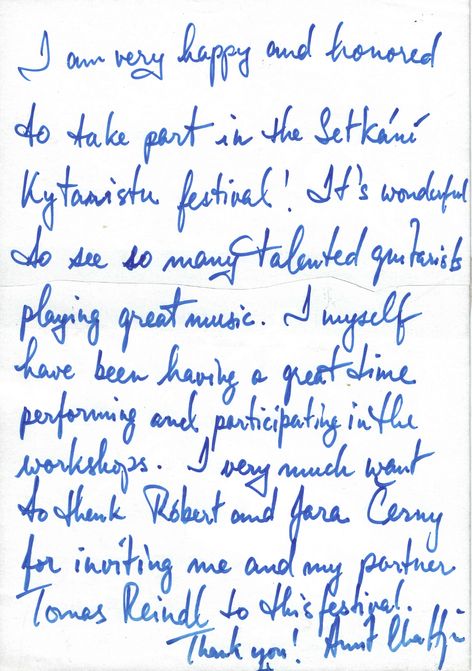 I am very happy and honored
to take part in the Setkání
Kytaristu festival! It's wonderful
to see so many talented guitarists
playing great music. I myself
have been having a great time
performing and participating in the
workshops. I very much want
to thank Róbert and Jara Černy
for inviting me and my partner
Tomas Reindl to this festival.
Thank you! Amit